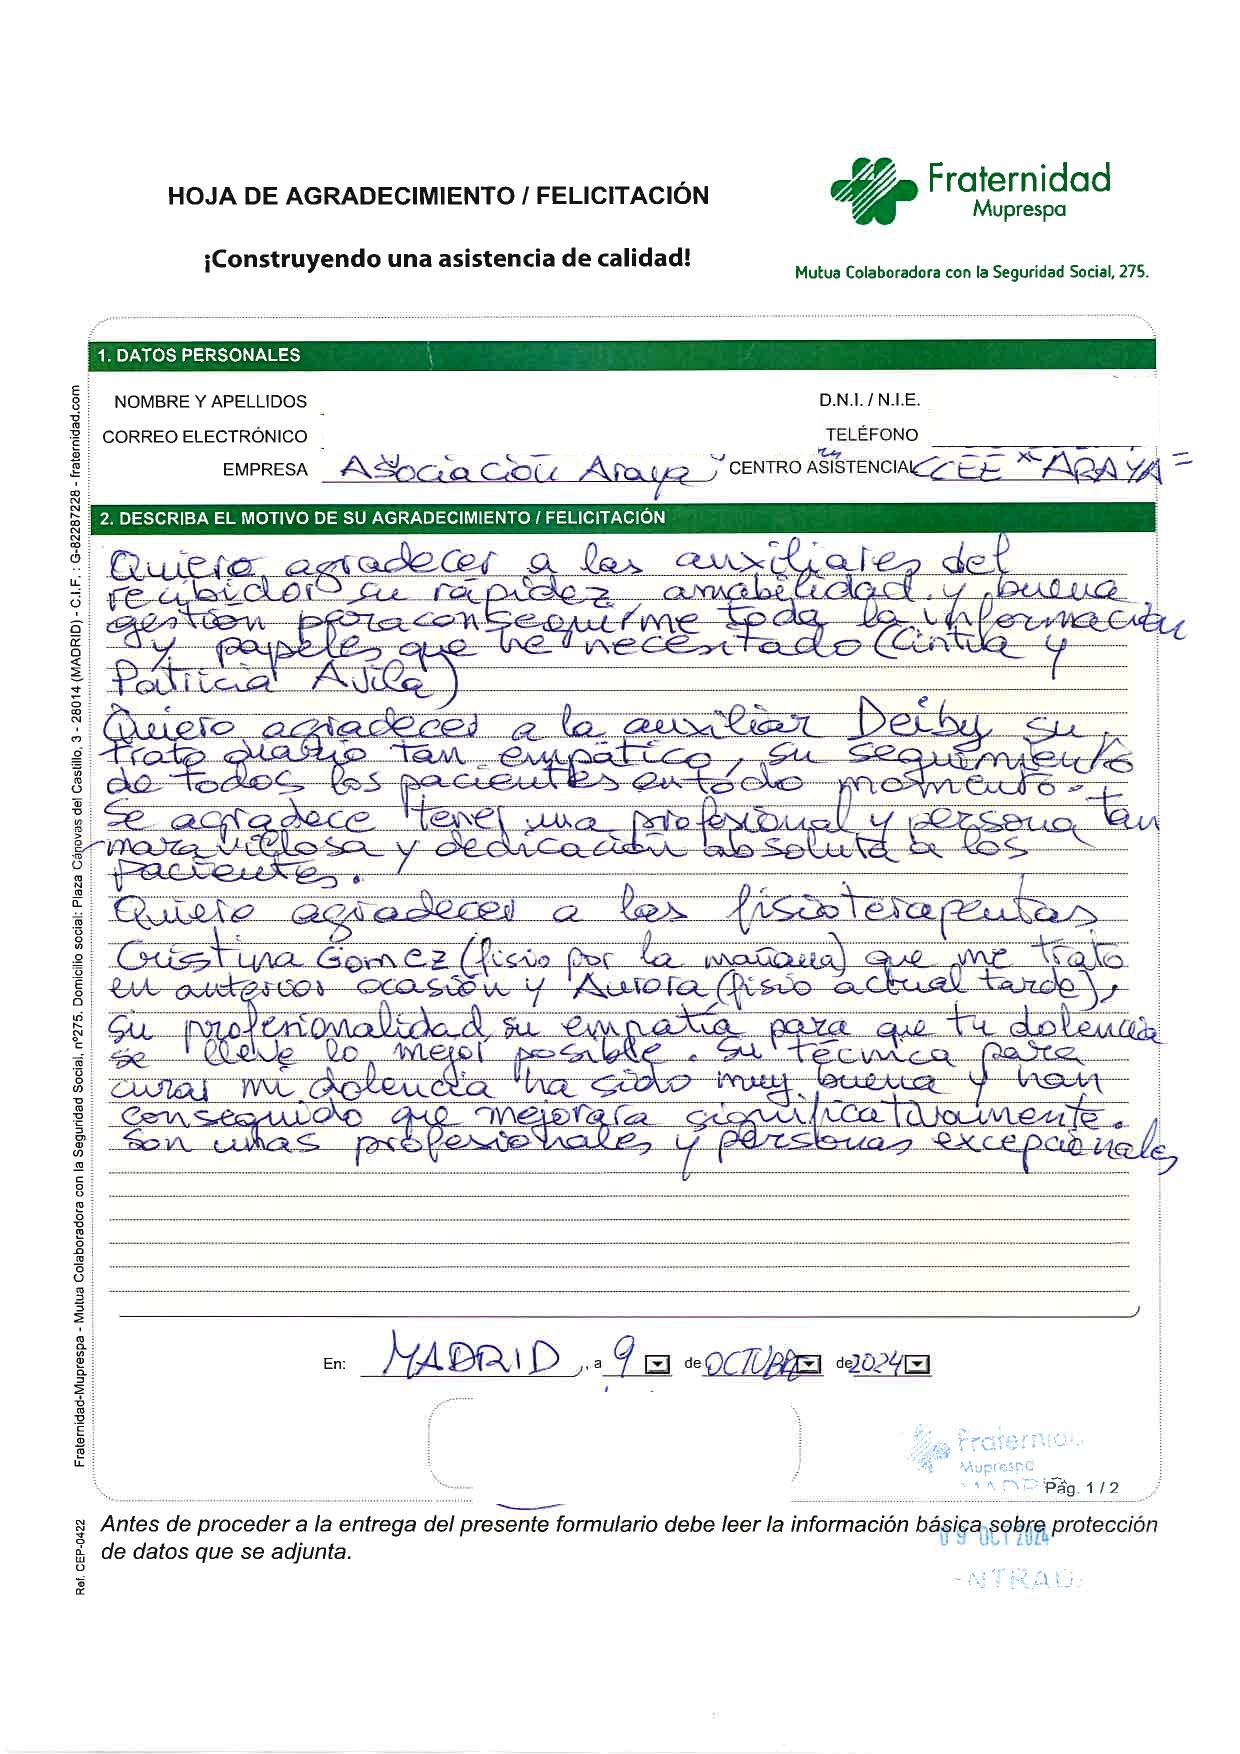 HOJA DE AGRADECIMIENTO / FELICITACIÓN
¡Construyendo una asistencia de calidad!
Fraternidad
Muprespa
Mutua Colaboradora con la Seguridad Social, 275.
1. DATOS PERSONALES
NOMBRE Y APELLIDOS
D.N.I. / N.I.E.
CORREO ELECTRÓNICO
TELÉFONO
EMPRESA Asociación Araya CENTRO ASISTENCIAL CEE "ARAYA"
2. DESCRIBA EL MOTIVO DE SU AGRADECIMIENTO / FELICITACIÓN
Quiero agradecer a las auxiliares del
recibidor su rápidez, amabilidad y buena
gestión para conseguirme toda la información
y papeles que he necesitado (Cintia y
Patricia Avila)
Quiero agradecer a la auxiliar Deiby su
trato diario tan empático, su seguimiento
de todos los pacientes en todo momento.
Se agradece tener una profesional y persona tan
maravillosa y dedicación absoluta a los
pacientes.
Quiero agradecer a las fisioterapeutas
Cristina Gomez (fisio por la mañana) que me trato
en anterior ocasión y Aurora (fisio actual tarde),
su profesionalidad, su empatía para que tu dolencia
se lleve lo mejor posible. Su técnica para
curar mi dolencia ha sido muy buena y han
conseguido que mejorara significativamente.
Son unas profesionales y personas excepcionales
En: MADRID, a 9 de OCTUBRE de 2024
Fraternidad
Muprespa
MADRID
Pág. 1 / 2
Antes de proceder a la entrega del presente formulario debe leer la información básica sobre protección
de datos que se adjunta.
09 OCT 2024
ENTRADA
Fraternidad-Muprespa - Mutua Colaboradora con la Seguridad Social, nº275. Domicilio social: Plaza Cánovas del Castillo, 3 - 28014 (MADRID) - C.I.F. : G-82287228 - fraternidad.com
Ref. CEP-0422